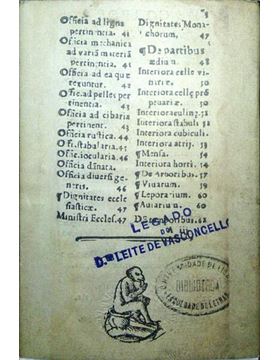 Officia ad ligna
pertinentia. 41
Officia mechanica
ad variã materiã
pertinentia. 41
Officia ad ea que
reguntur. 42
Offic. ad pelles per
tinentia. 43
Officia ad cibaria
pertinent. 43
Officia rustica. 44
Offi. stabularia
Offic. iocularia. 46
Officia dãnata.
Officia diuersi ge-
neris. 46
¶ Dignitates eccle
siasticæ. 47
Ministri Eccles. 47
Dignitates Mona
chorum. 47
¶ De partibus
ædium 48
Interiora celle vi
nariæ. 50
Interiora celle pro
ptuariæ. 50
Interiora stabuli. 52
Interiora cubiculi.
Interiora atrij. 54
¶ Mensa. 55
Interiora horti. 56
¶ De Arboribus.
¶ Viuarium. 61
¶ Leporarium. 61
¶ Auiarium. 61
LEGADO
DO
D.or LEITE DE VASCONCELLOS
BIBLIOTECA